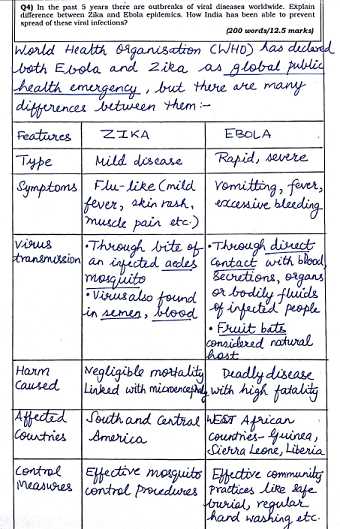 Q4) In the past 5 years there are outbreaks of viral diseases worldwide. Explain
difference between Zika and Ebola epidemics. How India has been able to prevent
spread of these viral infections?
(200 words/12.5 marks)
World Health Organisation (WHO) has declared
both Ebola and Zika as global public
health emergency, but there are many
differences between them:-
Features ZIKA EBOLA
Type Mild disease Rapid, severe
Symptoms Flu-like (mild
fever, skin rash,
muscle pain etc.)
Vomitting, fever,
excessive bleeding
Virus
transmission
• Through bite of
an infected aedes
mosquito
• Virus also found
in semen, blood
• Through direct
contact with blood,
secretions, organs
or bodily fluids
of infected people
• Fruit bats
considered natural
host
Harm
Caused
Negligible mortality
Linked with microencephaly
Deadly disease
with high fatality
Affected
Countries
South and Central
America
WEST African
countries- Guinea,
Sierra Leone, Liberia
Control
Measures
Effective mosquito
control procedures
Effective community
practices like safe
burial, regular
hand washing etc.